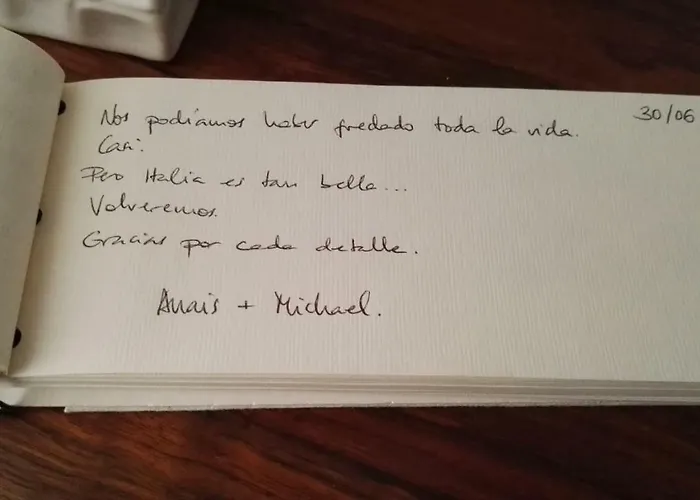 30/06
Nos podíamos haber quedado toda la vida.
Casi.
Pero Italia es tan bella...
Volveremos.
Gracias por cada detalle.
Anais + Michael.